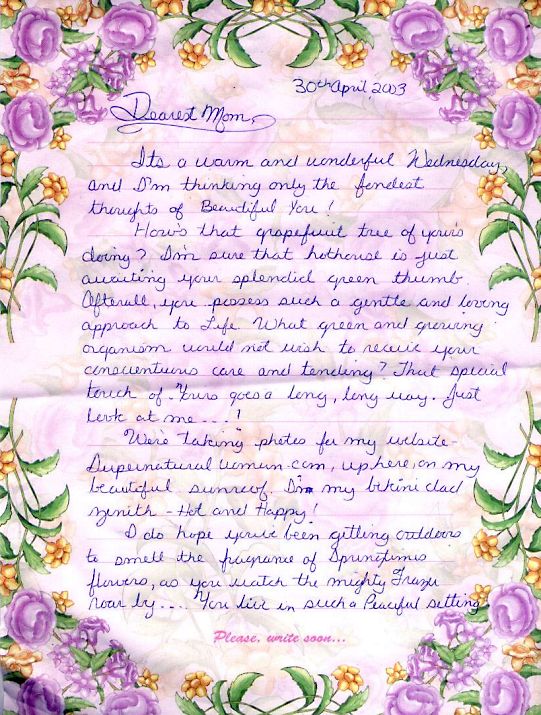 30th April, 2003
Dearest Mom,
Its a warm and wonderful Wednesday,
and I'm thinking only the fondest
thoughts of Beautiful You!
How's that grapefruit tree of yours
doing? I'm sure that hothouse is just
awaiting your splendid green thumb.
Afterall, you possess such a gentle and loving
approach to Life. What green and growing
organism would not wish to receive your
conscientious care and tending? That special
touch of Yours goes a long, long way. Just
look at me....!
We're taking photos for my website-
Supernaturalwoman.com, up here, on my
beautiful sunroof. I'm my bikini clad
zenith - Hot and Happy!
I do hope you've been getting outdoors
to smell the fragrance of Springtimes
flowers, as you watch the mighty Fraser
roar by.... You live in such a Peaceful setting
Please, write soon...